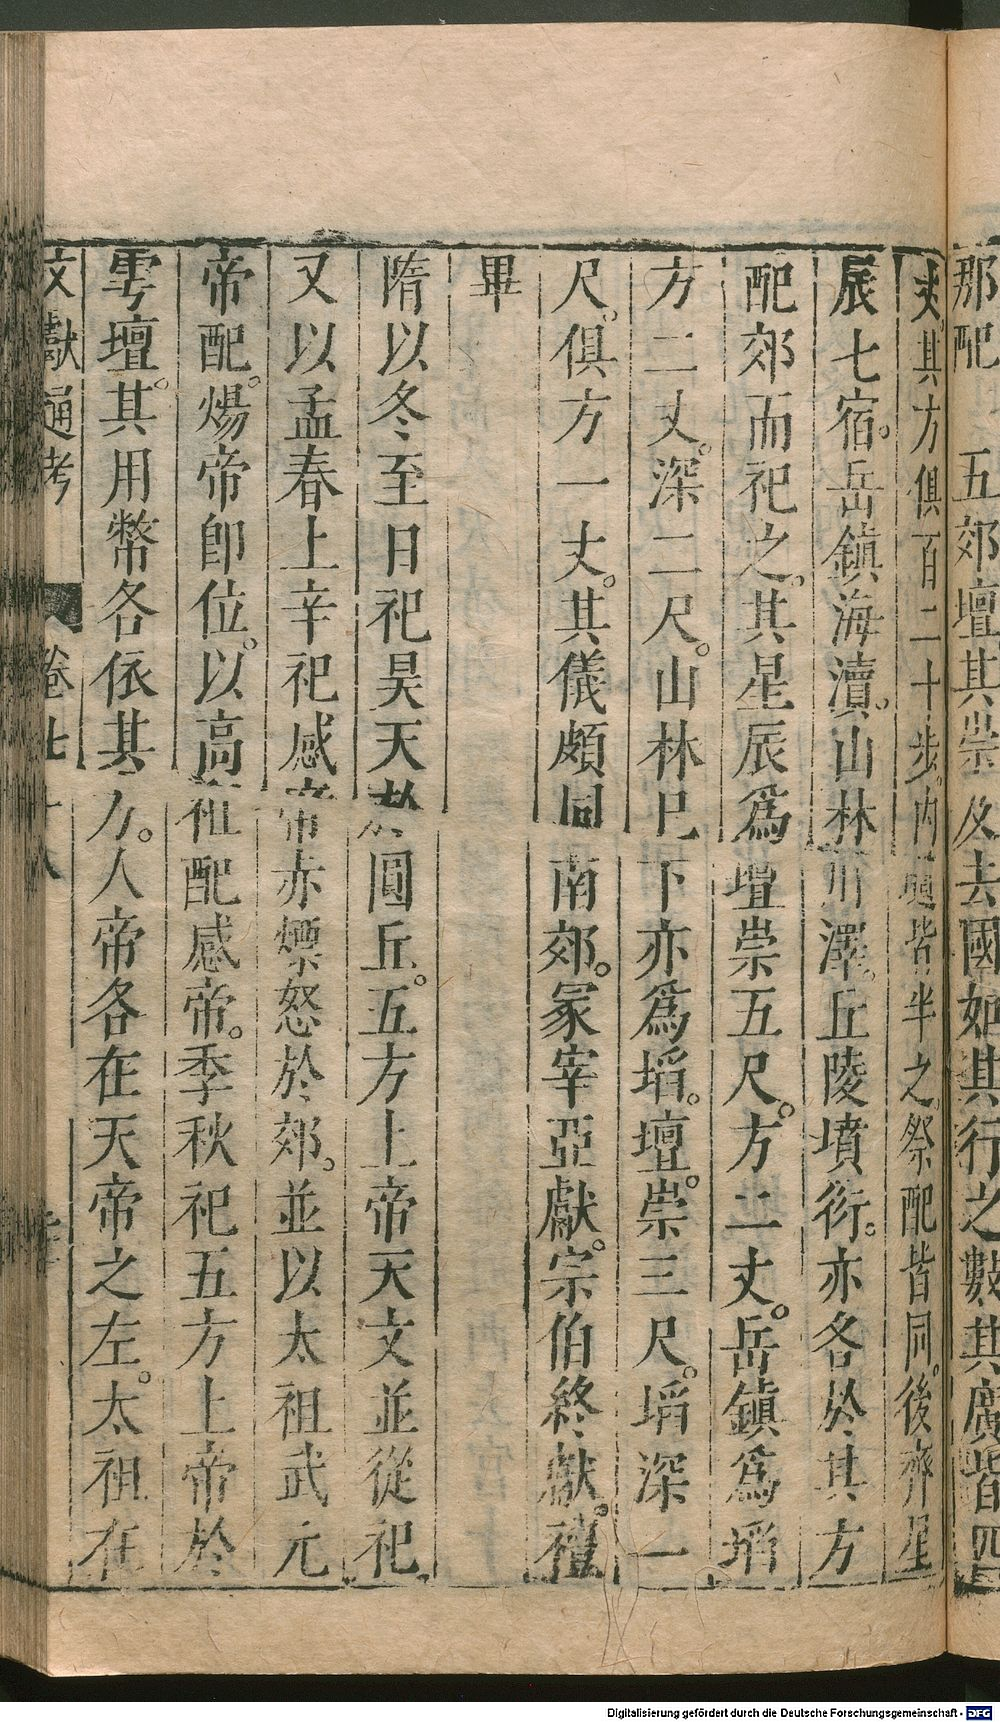 那配　五郊壇其崇及去國如其行之數其廣皆四
丈其方俱百二十步內壝皆半之祭配皆同後齊星
辰七宿岳鎮海瀆山林川澤丘陵墳衍亦各於其方
配郊而祀之其星辰爲壇崇五尺方二丈岳鎮爲坎
方二丈深二尺山林已下亦爲坎壇崇三尺坎深一
尺俱方一丈其儀頗同南郊冢宰亞獻宗伯終獻禮
畢
隋以冬至日祀昊天於圓丘五方上帝天文並從祀
又以孟春上辛祀感帝赤熛怒於郊並以太祖武元
帝配煬帝卽位以高祖配感帝季秋祀五方上帝於
雩壇其用幣各依其方人帝各在天帝之左太祖在
文獻通考　卷七十八
Digitalisierung gefördert durch die Deutsche Forschungsgemeinschaft - DFG